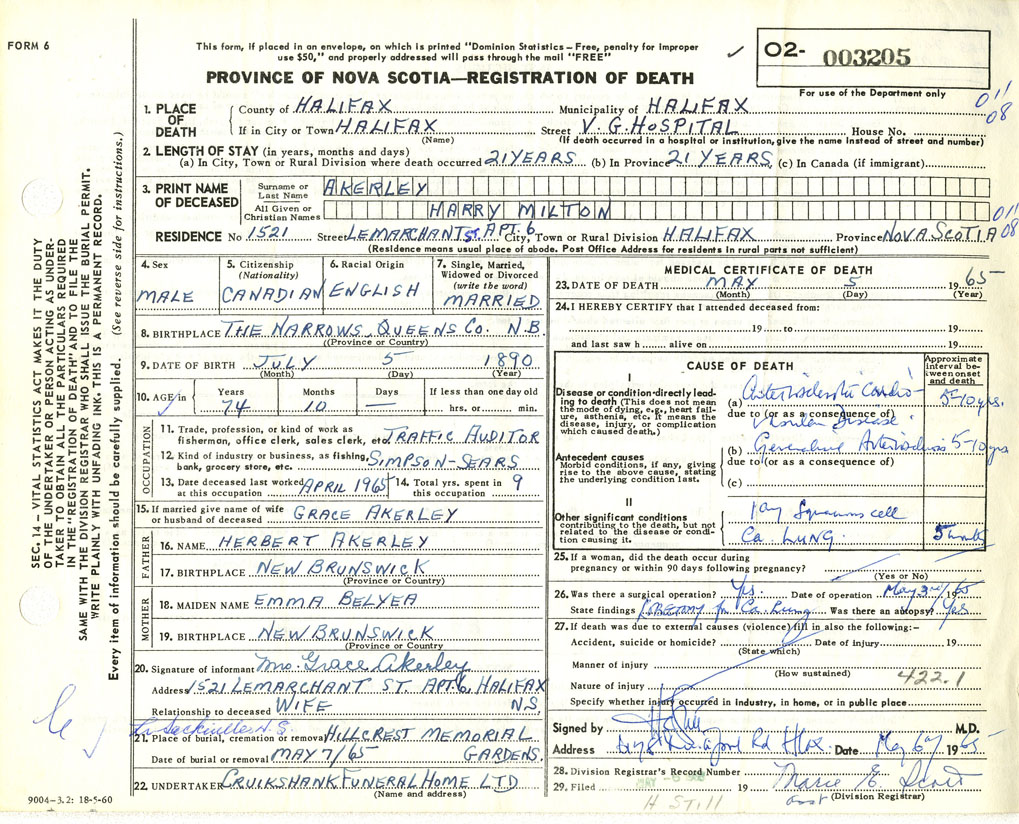 FORM 6
This form, if placed in an envelope, on which is printed "Dominion Statistics – Free, penalty for improper
use $50," and properly addressed will pass through the mail "FREE"
PROVINCE OF NOVA SCOTIA—REGISTRATION OF DEATH
✓ O2- 003205
For use of the Department only
011
08
1. PLACE OF DEATH
County of HALIFAX Municipality of HALIFAX
If in City or Town HALIFAX Street V. G. HOSPITAL House No.
(Name) (If death occurred in a hospital or institution, give the name instead of street and number)
2. LENGTH OF STAY (in years, months and days)
(a) In City, Town or Rural Division where death occurred 21 YEARS (b) In Province 21 YEARS (c) In Canada (if immigrant)
3. PRINT NAME OF DECEASED
Surname or Last Name AKERLEY
All Given or Christian Names HARRY MILTON
011
08
RESIDENCE No 1521 Street LEMARCHANT ST. APT. 6 City, Town or Rural Division HALIFAX Province NOVA SCOTIA
(Residence means usual place of abode. Post Office Address for residents in rural parts not sufficient)
4. Sex
MALE
5. Citizenship (Nationality)
CANADIAN
6. Racial Origin
ENGLISH
7. Single, Married, Widowed or Divorced (write the word)
MARRIED
8. BIRTHPLACE THE NARROWS, QUEENS CO. N.B.
(Province or Country)
9. DATE OF BIRTH JULY 5 1890
(Month) (Day) (Year)
10. AGE in Years Months Days If less than one day old
74 10 — hrs. or min.
OCCUPATION
11. Trade, profession, or kind of work as
fisherman, office clerk, sales clerk, etc. TRAFFIC AUDITOR
12. Kind of industry or business, as fishing,
bank, grocery store, etc. SIMPSON-SEARS
13. Date deceased last worked at this occupation APRIL 1965 14. Total yrs. spent in this occupation 9
15. If married give name of wife
or husband of deceased GRACE AKERLEY
FATHER
16. NAME HERBERT AKERLEY
17. BIRTHPLACE NEW BRUNSWICK
(Province or Country)
MOTHER
18. MAIDEN NAME EMMA BELYEA
19. BIRTHPLACE NEW BRUNSWICK
(Province or Country
20. Signature of informant Mrs. Grace Akerley
Address 1521 LEMARCHANT ST. APT. 6, HALIFAX
Relationship to deceased WIFE N.S.
Sackville N.S.
21. Place of burial, cremation or removal HILLCREST MEMORIAL
Date of burial or removal MAY 7/65 GARDENS.
22. UNDERTAKER CRUIKSHANK FUNERAL HOME LTD
(Name and address)
MEDICAL CERTIFICATE OF DEATH
23. DATE OF DEATH MAY 5 1965
(Month) (Day) (Year)
24. I HEREBY CERTIFY that I attended deceased from:
19 to 19
and last saw h alive on 19
CAUSE OF DEATH
Approximate interval between onset and death
I
Disease or condition directly leading to death (This does not mean the mode of dying, e.g., heart failure, asthenia, etc. It means the disease, injury, or complication which caused death.)
(a) Arteriosclerotic Cardio- 5-10 yrs.
due to (or as a consequence of)
Vascular Disease
Antecedent causes
Morbid conditions, if any, giving rise to the above cause, stating the underlying condition last.
(b) Generalized Arteriosclerosis 5-10 yrs
due to (or as a consequence of)
(c)
II
Other significant conditions
contributing to the death, but not related to the disease or condition causing it.
Squamous cell
Ca. LUNG.
25. If a woman, did the death occur during
pregnancy or within 90 days following pregnancy?
(Yes or No)
26. Was there a surgical operation? Yes. Date of operation May 3rd 1965
State findings for Ca. Lung Was there an autopsy? Yes
27. If death was due to external causes (violence) fill in also the following:–
Accident, suicide or homicide? Date of injury 19
(State which)
Manner of injury
(How sustained) 422.1
Nature of injury
Specify whether injury occurred in industry, in home, or in public place
Signed by M.D.
Address Rd Hfx. Date May 6 1965
28. Division Registrar's Record Number
29. Filed 19 Marie E. Scott
(Division Registrar)
H Still
SEC. 14 – VITAL STATISTICS ACT MAKES IT THE DUTY
OF THE UNDERTAKER OR PERSON ACTING AS UNDER-
TAKER TO OBTAIN ALL THE PARTICULARS REQUIRED
IN THE "REGISTRATION OF DEATH" AND TO FILE THE
SAME WITH THE DIVISION REGISTRAR WHO SHALL ISSUE THE BURIAL PERMIT.
WRITE PLAINLY WITH UNFADING INK. THIS IS A PERMANENT RECORD.
Every item of information should be carefully supplied. (See reverse side for instructions.)
9004-3.2: 18-5-60